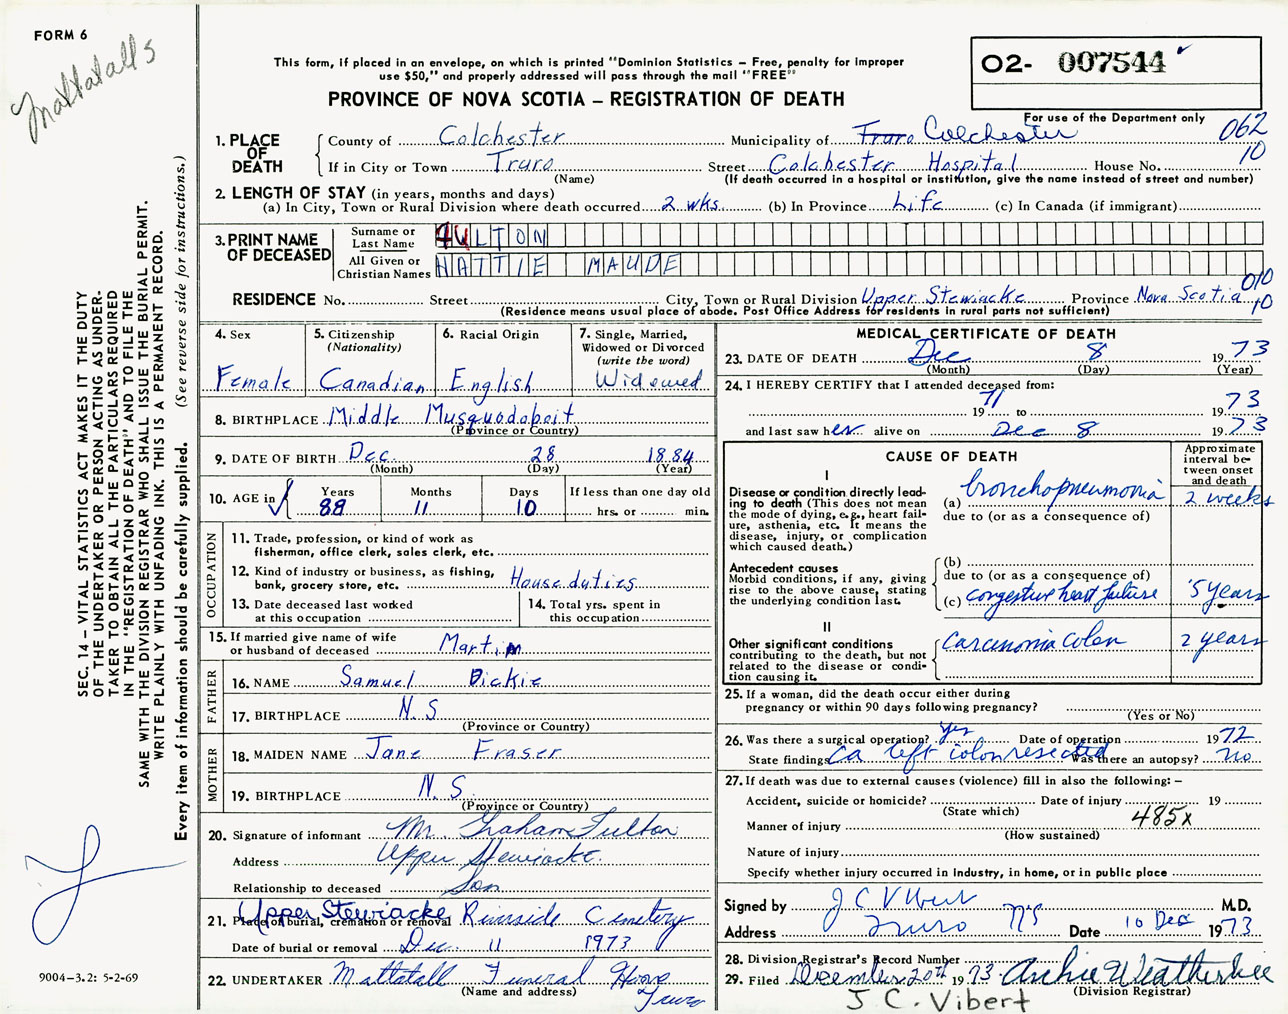 FORM 6
Mattatalls
This form, if placed in an envelope, on which is printed "Dominion Statistics – Free, penalty for improper
use $50," and properly addressed will pass through the mail "FREE"
O2- 007544
For use of the Department only
PROVINCE OF NOVA SCOTIA – REGISTRATION OF DEATH
062
10
1. PLACE OF DEATH
County of Colchester Municipality of Truro Colchester
If in City or Town Truro Street Colchester Hospital House No.
(Name) (If death occurred in a hospital or institution, give the name instead of street and number)
2. LENGTH OF STAY (in years, months and days)
(a) In City, Town or Rural Division where death occurred 2 wks. (b) In Province Life (c) In Canada (if immigrant)
3. PRINT NAME OF DECEASED
Surname or Last Name FULTON
All Given or Christian Names HATTIE MAUDE
010
10
RESIDENCE No. Street City, Town or Rural Division Upper Stewiacke Province Nova Scotia
(Residence means usual place of abode. Post Office Address for residents in rural parts not sufficient)
4. Sex Female
5. Citizenship (Nationality) Canadian
6. Racial Origin English
7. Single, Married, Widowed or Divorced (write the word) Widowed
8. BIRTHPLACE Middle Musquodoboit
(Province or Country)
9. DATE OF BIRTH Dec. 28 1884
(Month) (Day) (Year)
10. AGE in Years 88 Months 11 Days 10 If less than one day old
hrs. or min.
OCCUPATION
11. Trade, profession, or kind of work as
fisherman, office clerk, sales clerk, etc.
12. Kind of industry or business, as fishing,
bank, grocery store, etc. House duties
13. Date deceased last worked
at this occupation
14. Total yrs. spent in
this occupation
15. If married give name of wife
or husband of deceased Martin
FATHER
16. NAME Samuel Dickie
17. BIRTHPLACE N.S
(Province or Country)
MOTHER
18. MAIDEN NAME Jane Fraser
19. BIRTHPLACE N.S
(Province or Country)
20. Signature of informant Mr. Graham Fulton
Address Upper Stewiacke.
Relationship to deceased Son
21. Place of burial, cremation or removal Upper Stewiacke Riverside Cemetery
Date of burial or removal Dec. 11 1973
22. UNDERTAKER Mattatall Funeral Home
(Name and address) Truro
MEDICAL CERTIFICATE OF DEATH
23. DATE OF DEATH Dec 8 1973
(Month) (Day) (Year)
24. I HEREBY CERTIFY that I attended deceased from:
1971 to 1973
and last saw her alive on Dec 8 1973
CAUSE OF DEATH
Approximate interval between onset and death
I
Disease or condition directly leading to death (This does not
mean the mode of dying, e.g., heart failure, asthenia, etc. It means the
disease, injury, or complication
which caused death.)
(a) bronchopneumonia 2 weeks
due to (or as a consequence of)
Antecedent causes
Morbid conditions, if any, giving
rise to the above cause, stating
the underlying condition last.
(b)
due to (or as a consequence of)
(c) congestive heart failure 5 years
II
Other significant conditions
contributing to the death, but not
related to the disease or condition causing it.
Carcinoma Colon 2 years
25. If a woman, did the death occur either during
pregnancy or within 90 days following pregnancy?
(Yes or No)
26. Was there a surgical operation? yes Date of operation 1972
State findings Ca left colon resected Was there an autopsy? no
27. If death was due to external causes (violence) fill in also the following: –
Accident, suicide or homicide? Date of injury 19
(State which)
485x
Manner of injury
(How sustained)
Nature of injury
Specify whether injury occurred in industry, in home, or in public place
Signed by J C Vibert M.D.
Address Truro NS Date 10 Dec 1973
28. Division Registrar's Record Number
29. Filed December 20th 1973 Archie Weatherbee
(Division Registrar)
J. C. Vibert
SEC. 14 – VITAL STATISTICS ACT MAKES IT THE DUTY
OF THE UNDERTAKER OR PERSON ACTING AS UNDER-
TAKER TO OBTAIN ALL THE PARTICULARS REQUIRED
IN THE "REGISTRATION OF DEATH" AND TO FILE THE
SAME WITH THE DIVISION REGISTRAR WHO SHALL ISSUE THE BURIAL PERMIT.
WRITE PLAINLY WITH UNFADING INK. THIS IS A PERMANENT RECORD.
Every item of information should be carefully supplied. (See reverse side for instructions.)
9004-3.2: 5-2-69